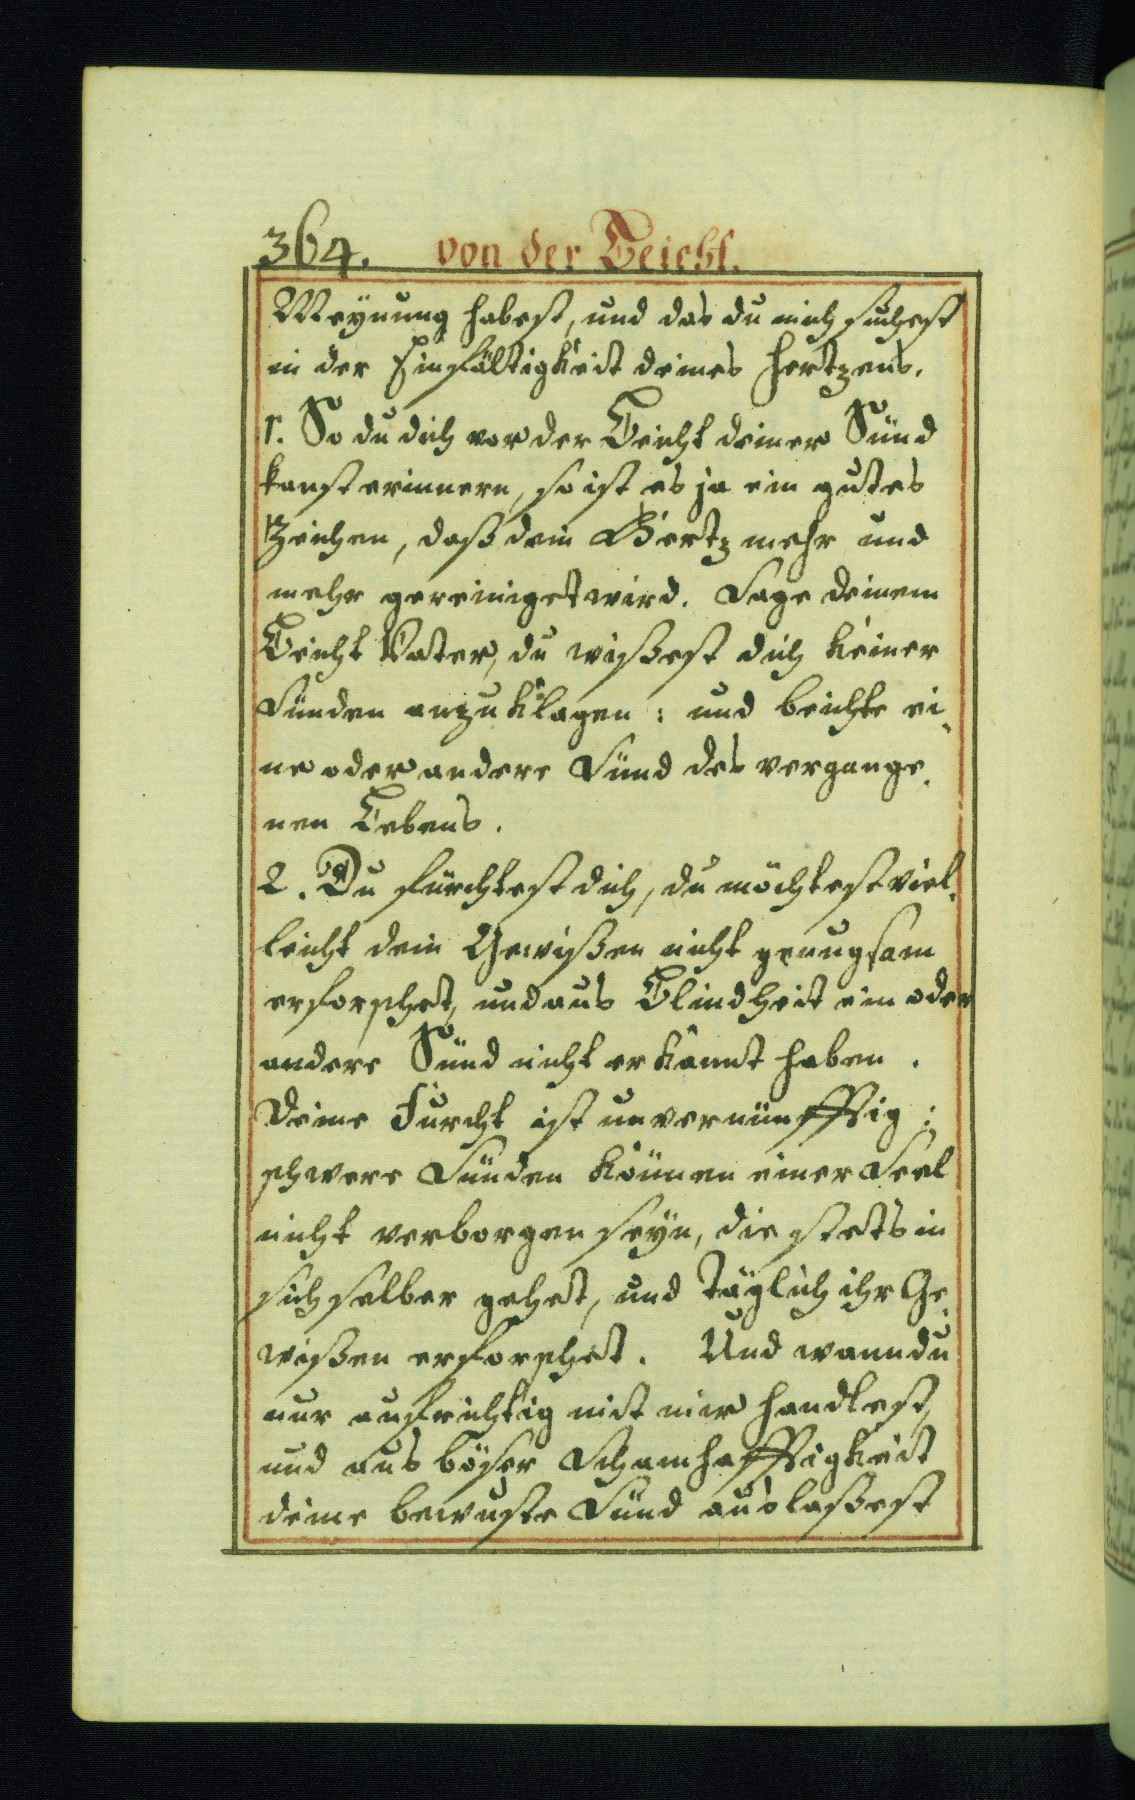 364. von der Beicht.
Meynung habest, und das du mich suchest
in der Einfältigkeit deines Hertzens.
1. So du dich vor der Beicht deiner Sünd
kanst erinnern, so ist es ja ein gutes
Zeichen, daß dein Hertz mehr und
mehr gereiniget wird. Sage deinem
Beicht Vater, du wißest dich keiner
Sünden anzuklagen: und beichte ei-
ne oder andere Sünd des vergange-
nen Lebens.
2. Du fürchtest dich, du möchtest viel-
leicht dein Gewißen nicht genugsam
erforschet, und aus Blindheit ein oder
andere Sünd nicht erkannt haben.
Deine Furcht ist unvernünfftig:
schwere Sünden können einer Seel
nicht verborgen seyn, die stets in
sich selber gehet, und täglich ihr Ge-
wißen erforschet. Und wann du
nur aufrichtig mit mir handlest,
und aus böser Schamhafftigkeit
deine bewuste Sünd auslaßest